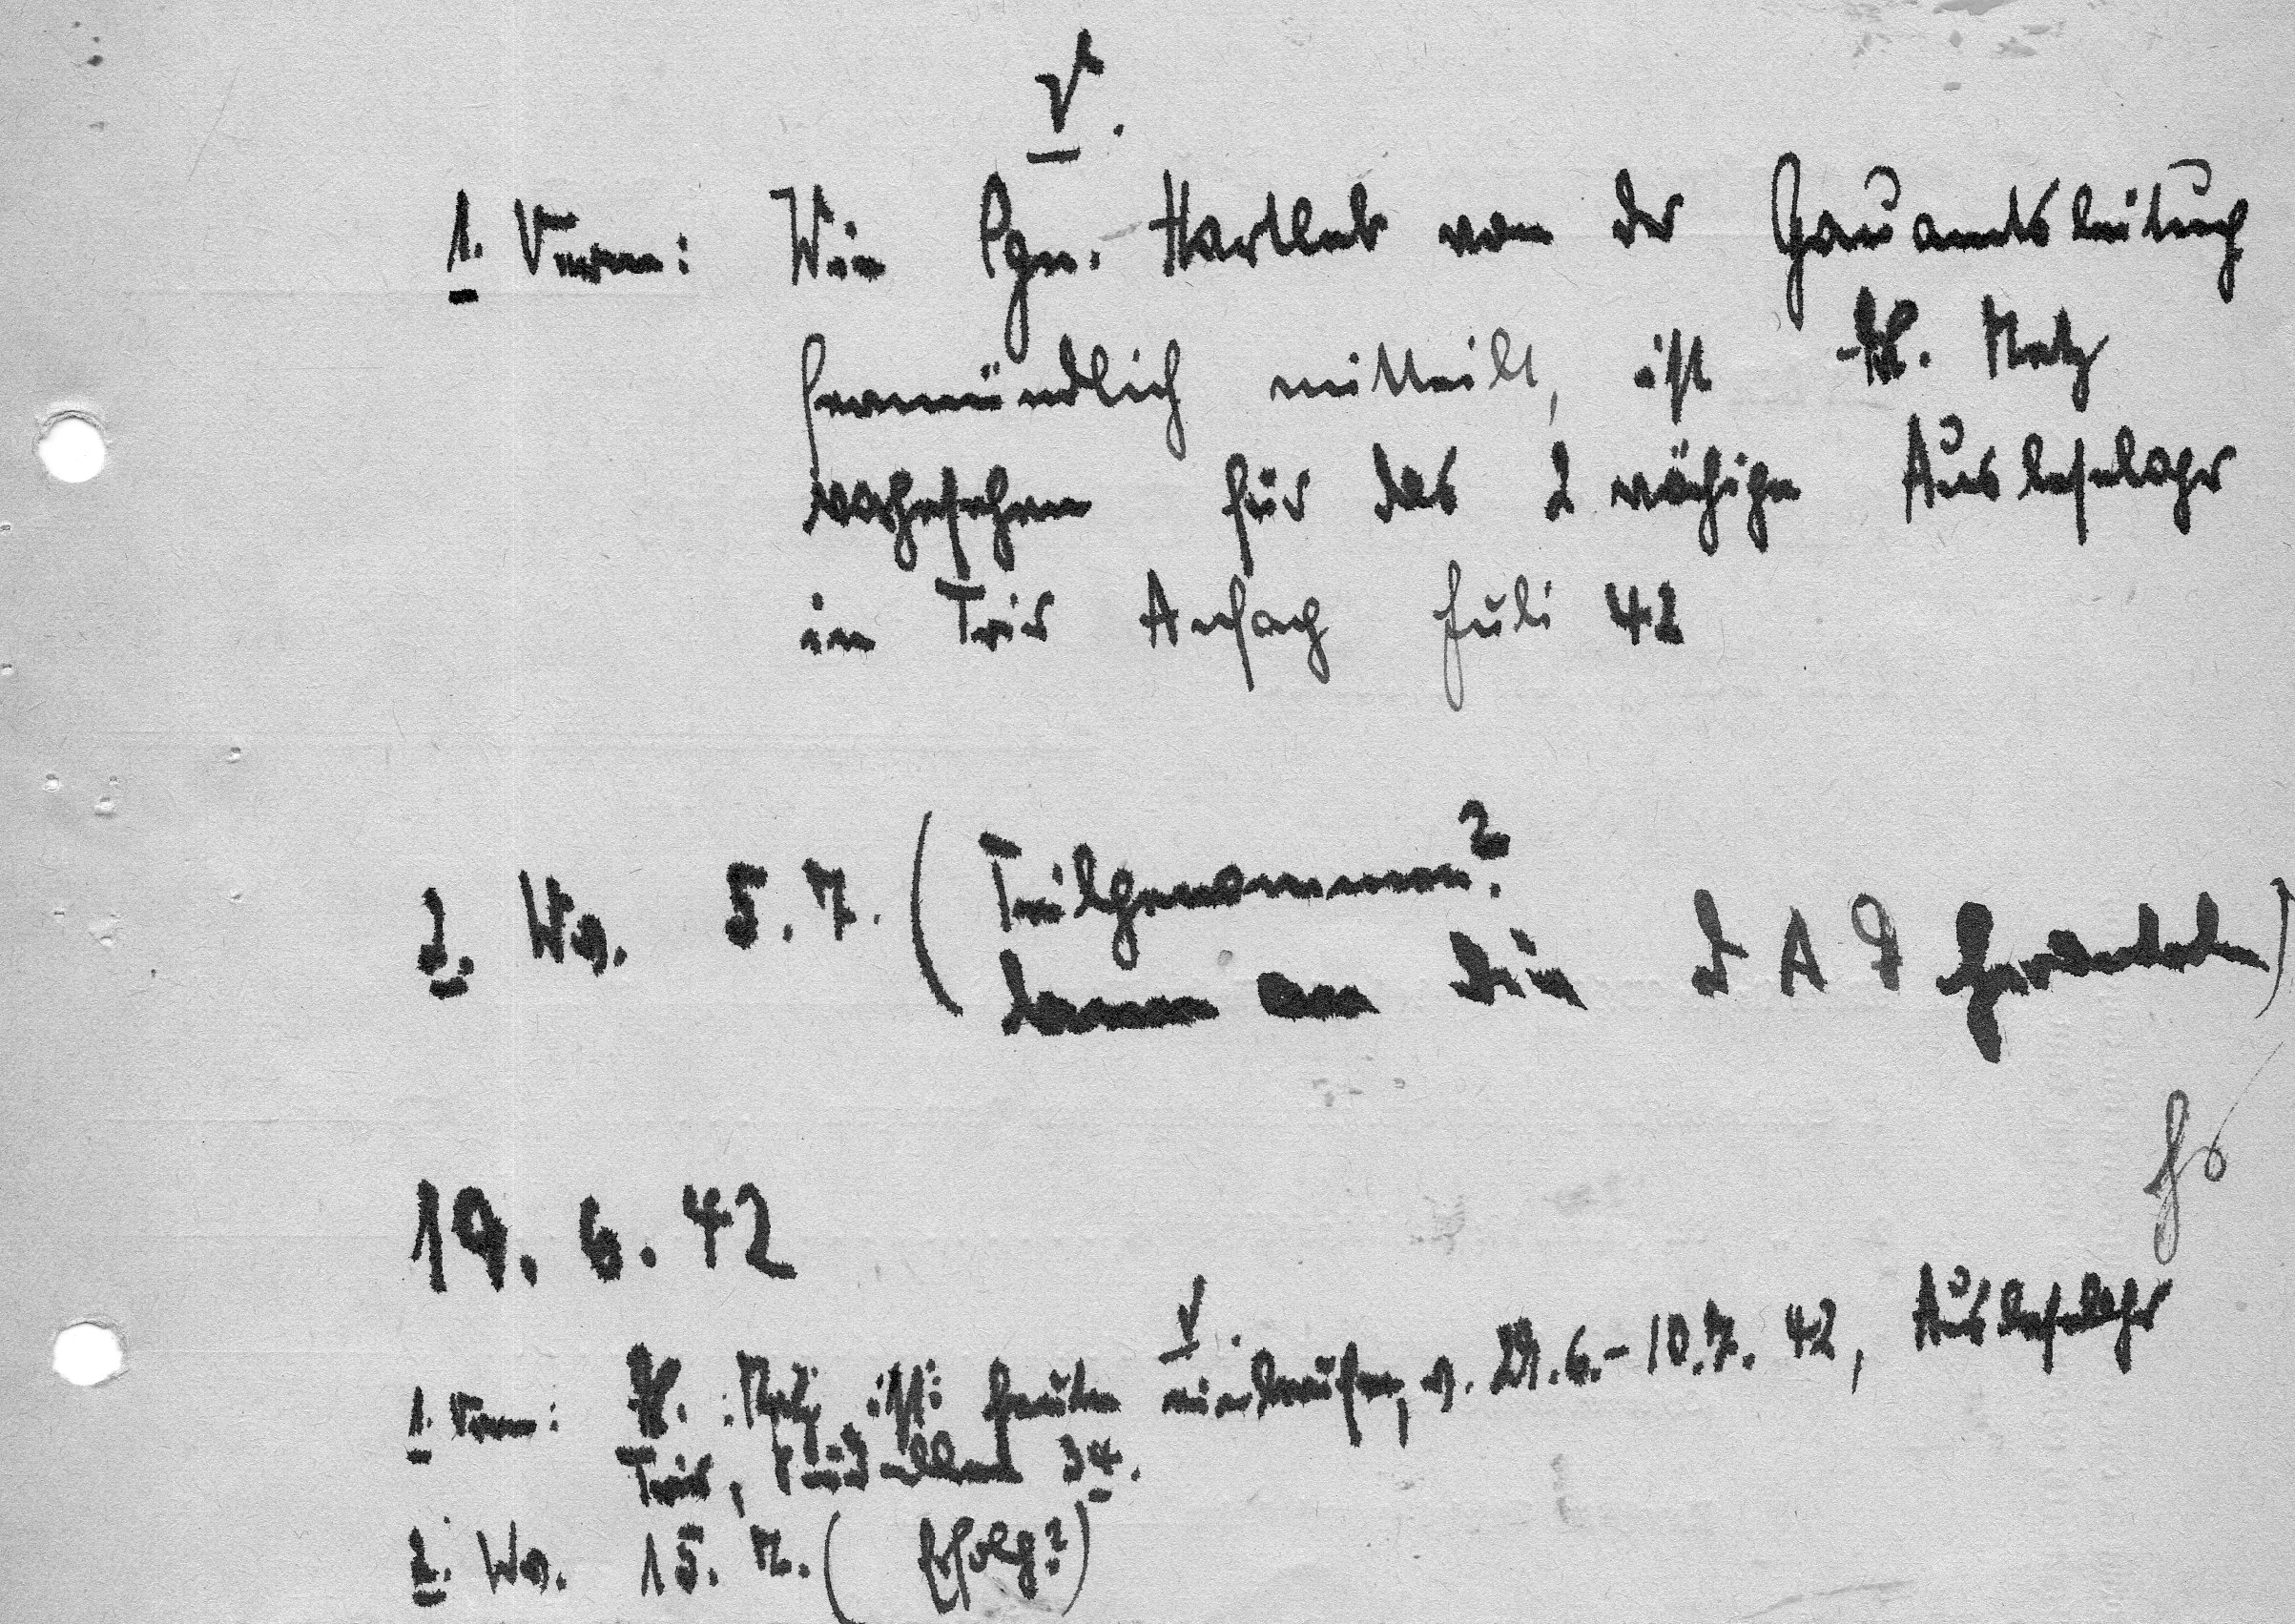 V.
1. Verm: Wie Pgn. Hartleb von der Gauamtsleitung
fernmündlich mitteilt, ist Metz
vorgesehen für das 2 wöchige Ausleselager
in Trier Anfang Juli 42
2. Wv. 5.7. (Teilgenommen?
dann an die DAF
19. 6. 42
V.
1. Verm: Metz ist heute einberufen, v. 29.6.-10.7. 42, Ausleselager
Trier, 34.
2. Wv. 15. 7. (Erfolg?)